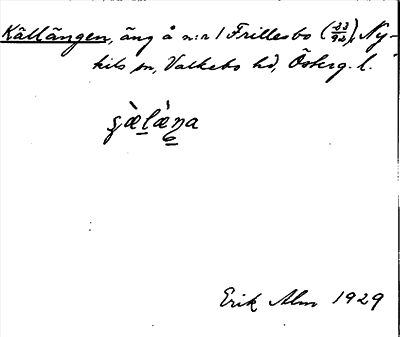 Källängen, äng å n:r 1 Frillesbo (23/92), Ny-
kils sn, Valkebo hd, Österg. l.
Erik Alm 1929